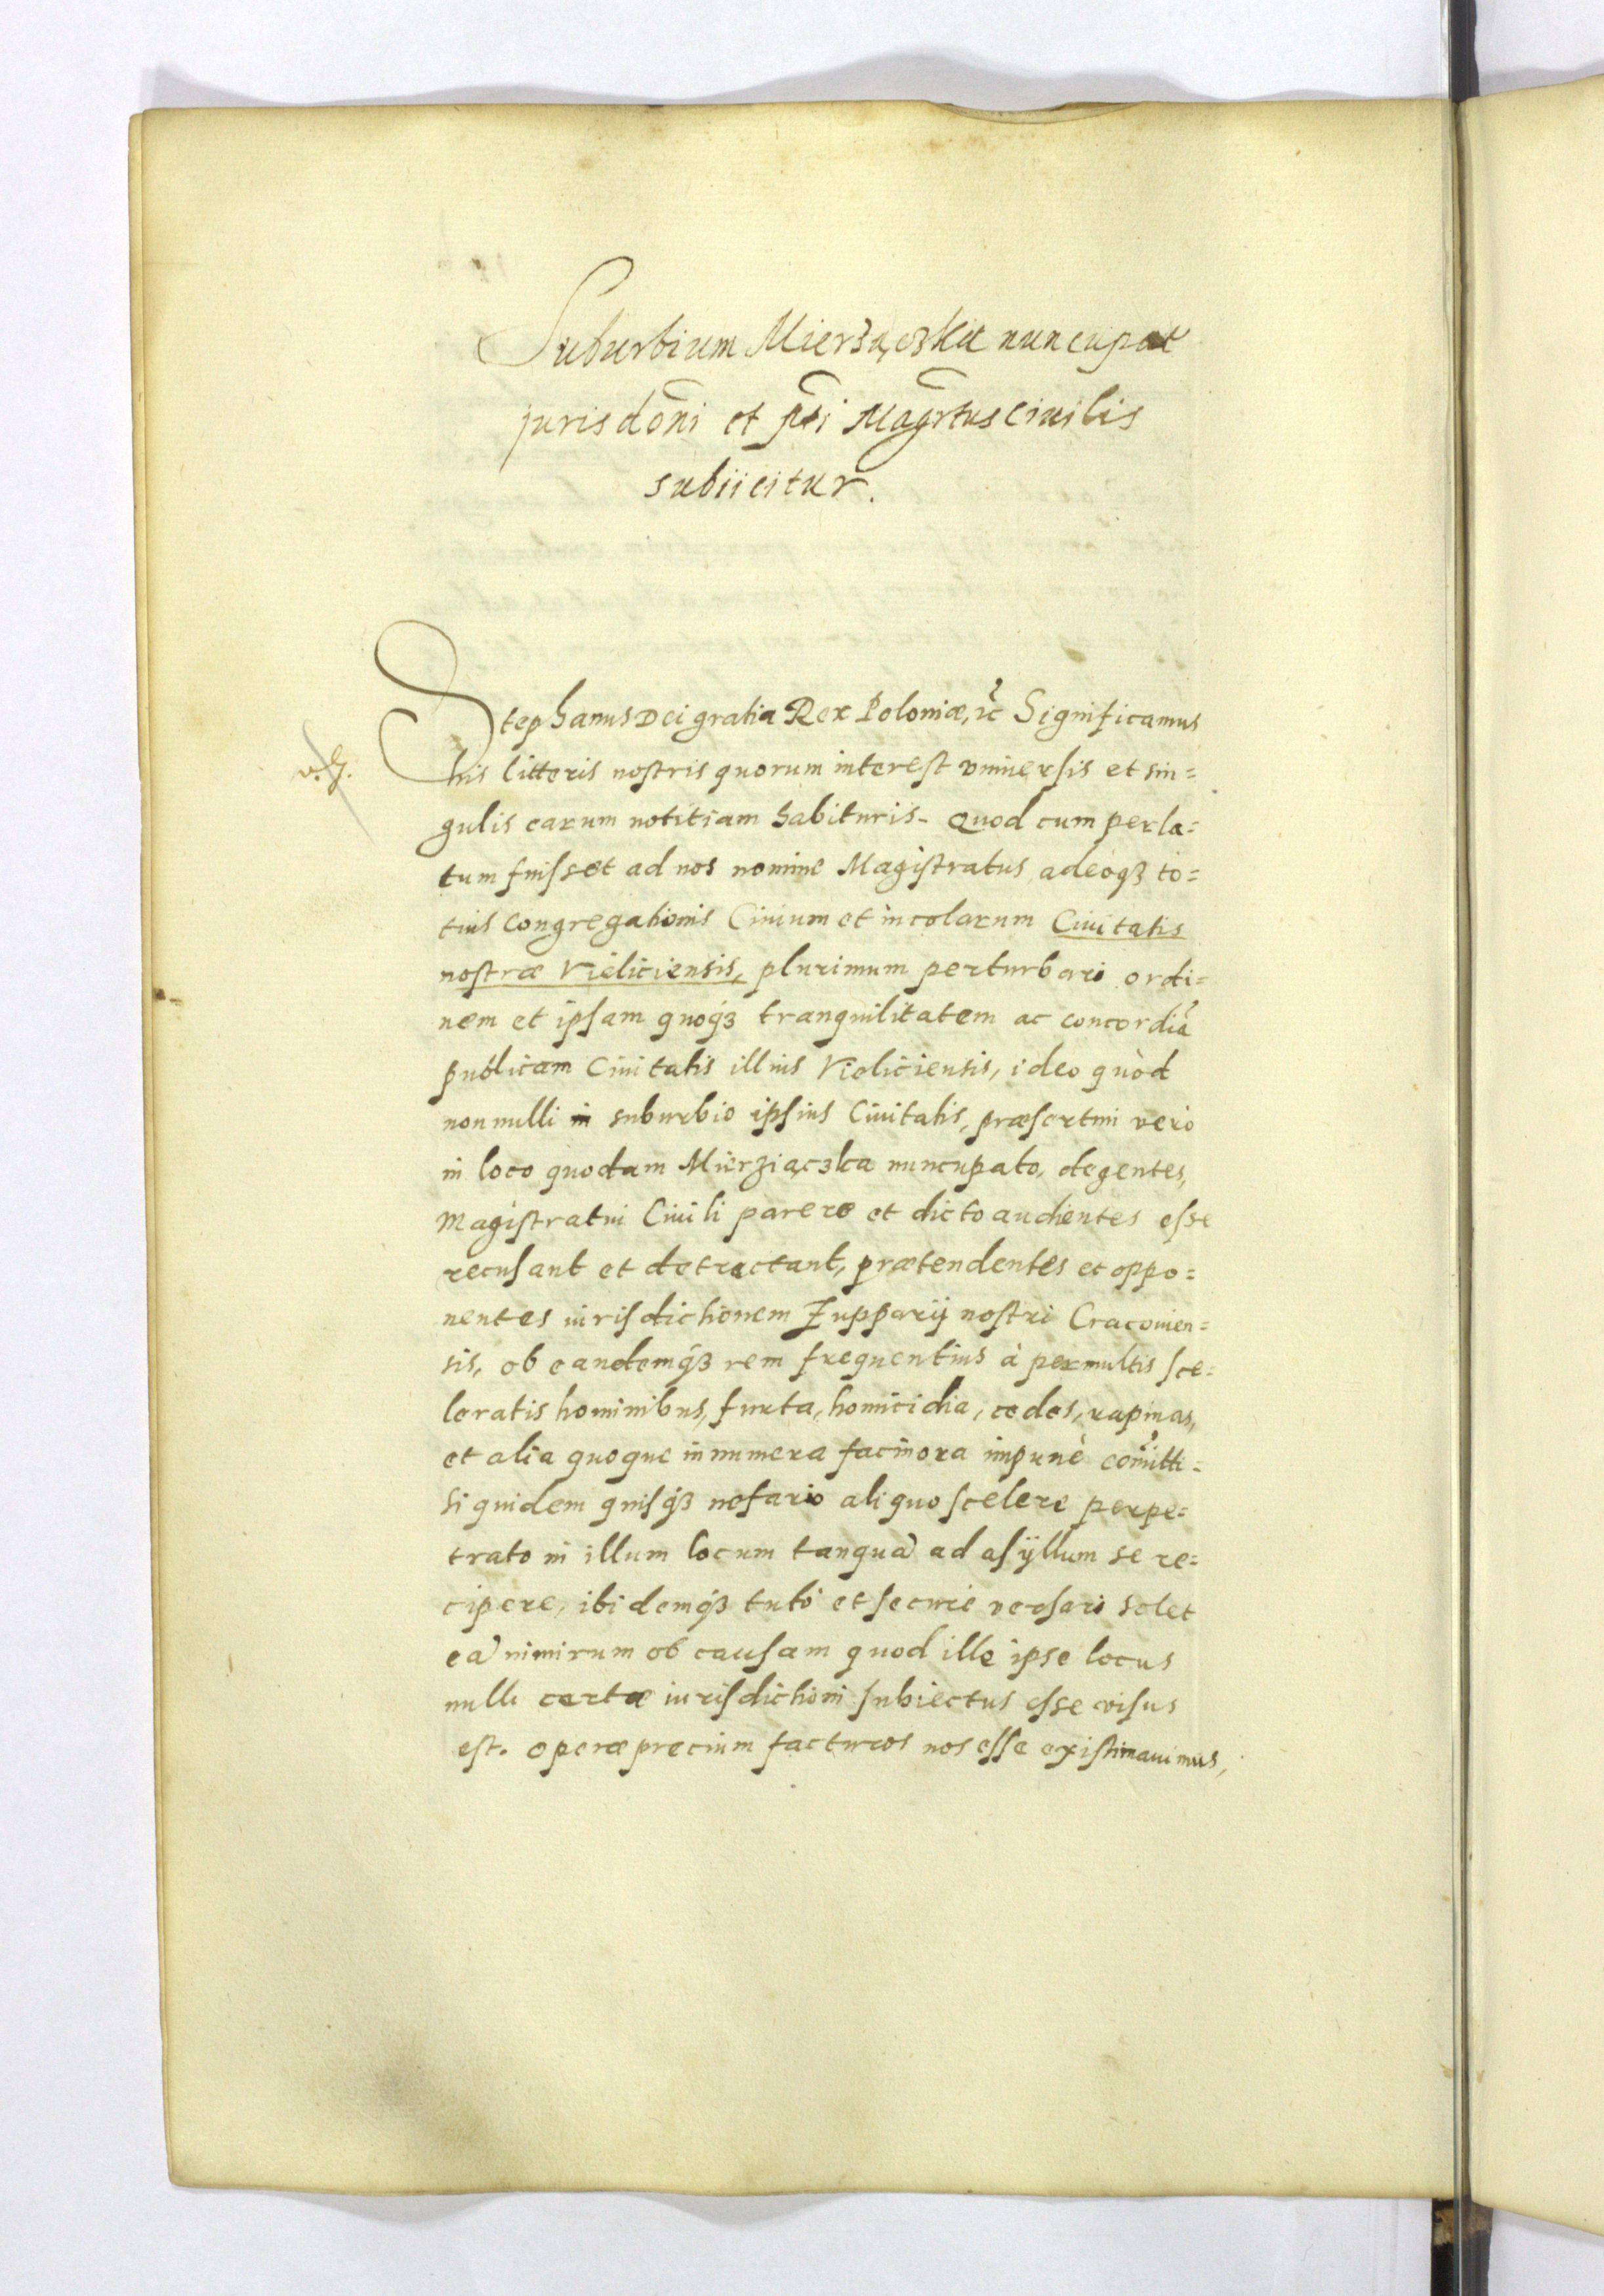 Suburbium Mierzączka nuncupat
jurisdōni et pti Magrtus Ciuilis
subiicitur.
Stephanus Dei gratia Rex Poloniæ, &c Significamus
his litteris nostris quorum interest vniuersis et sin=
gulis earum notitiam habituris. Quod cum perla=
tum fuisset ad nos nomine Magistratus adeoqȝ to=
tius Congregationis Ciuium et incolarum Ciuitatis
nostræ Vieliciensis, plurimum perturbari ordi=
nem et ipsam quoqȝ tranquilitatem ac concordiã
publicam Ciuitatis illius Vieliciensis, ideo quòd
nonnulli in suburbio ipsius Ciuitatis, præsertim verò
in loco quodam Mierziączka nuncupato, degentes,
Magistratui Ciuili parere et dicto audientes esse
recusant et detractant, prætendentes et oppo=
nentes iurisdictionem Zupparij nostri Cracouien=
sis, ob eandemqȝ rem frequentius à permultis sce=
leratis hominibus, furta, homicidia, cedes, rapinas,
et alia quoque innumera facinora impunè com̃itti=
Siquidem quisqȝ nefario aliquo scelere perpe=
trato in illum locum tanquã ad asÿllum se re=
cipere, ibidemqȝ tutò et securè versari solet
eã nimirum ob causam quod ille ipse locus
nulli certæ iurisdictioni subiectus esse visus
est. Operæprecium facturos nos esse existimauimus,